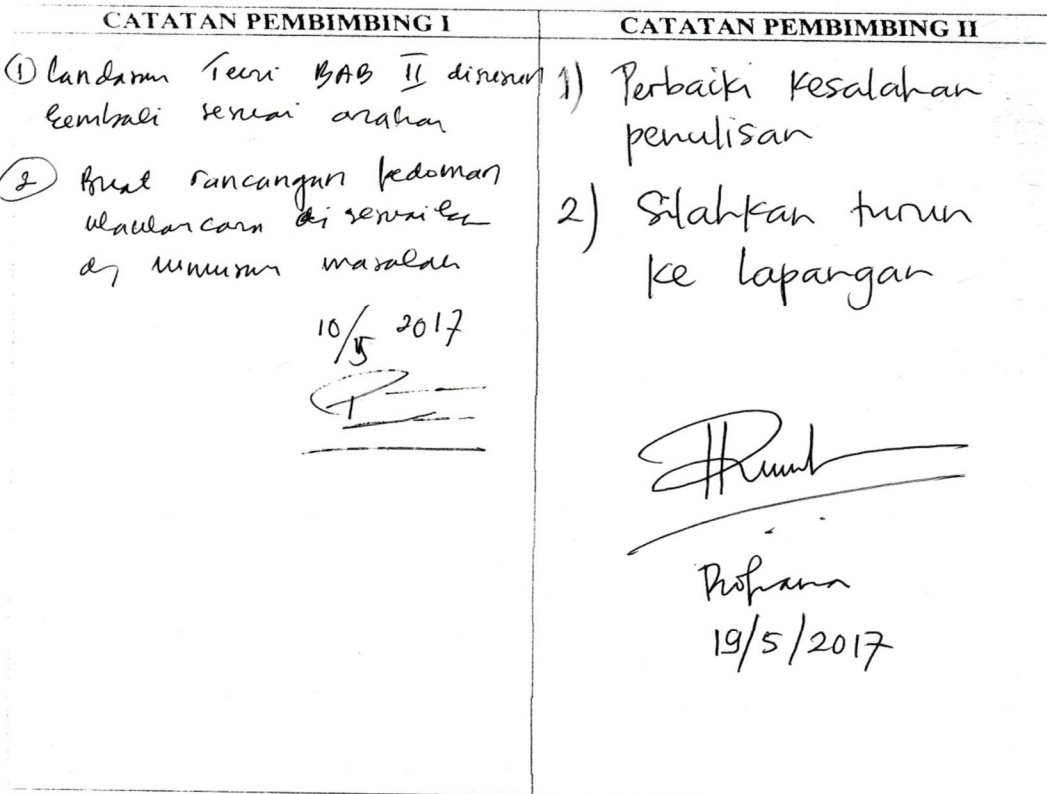 CATATAN PEMBIMBING I
① Landasan Teori BAB II disusun
kembali sesuai arahan
② Buat rancangan pedoman
wawancara di sesuaikan
dg rumusan masalah
10/5 2017
CATATAN PEMBIMBING II
1) Perbaiki kesalahan
penulisan
2) Silahkan turun
ke lapangan
Rohana
19/5/2017